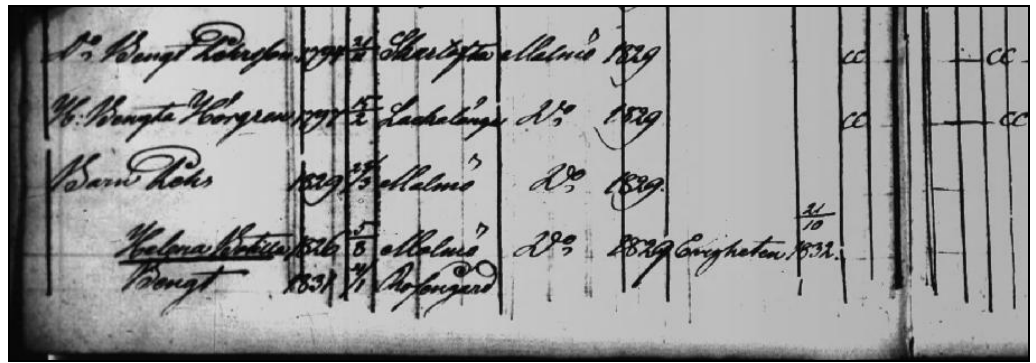 Do Bengt Löhrsson 1794 Skartofta Malmö 1829 CC CC
H: Bengta Hörgren 1797 15/2 Lackalänga Do 1829 CC CC
Barn Löhs 1829 Malmö Do 1829.
Helena Botilla 1826 5/8 Malmö Do 1829 Evigheten 21/10 1832.
Bengt 1831 Rosengård